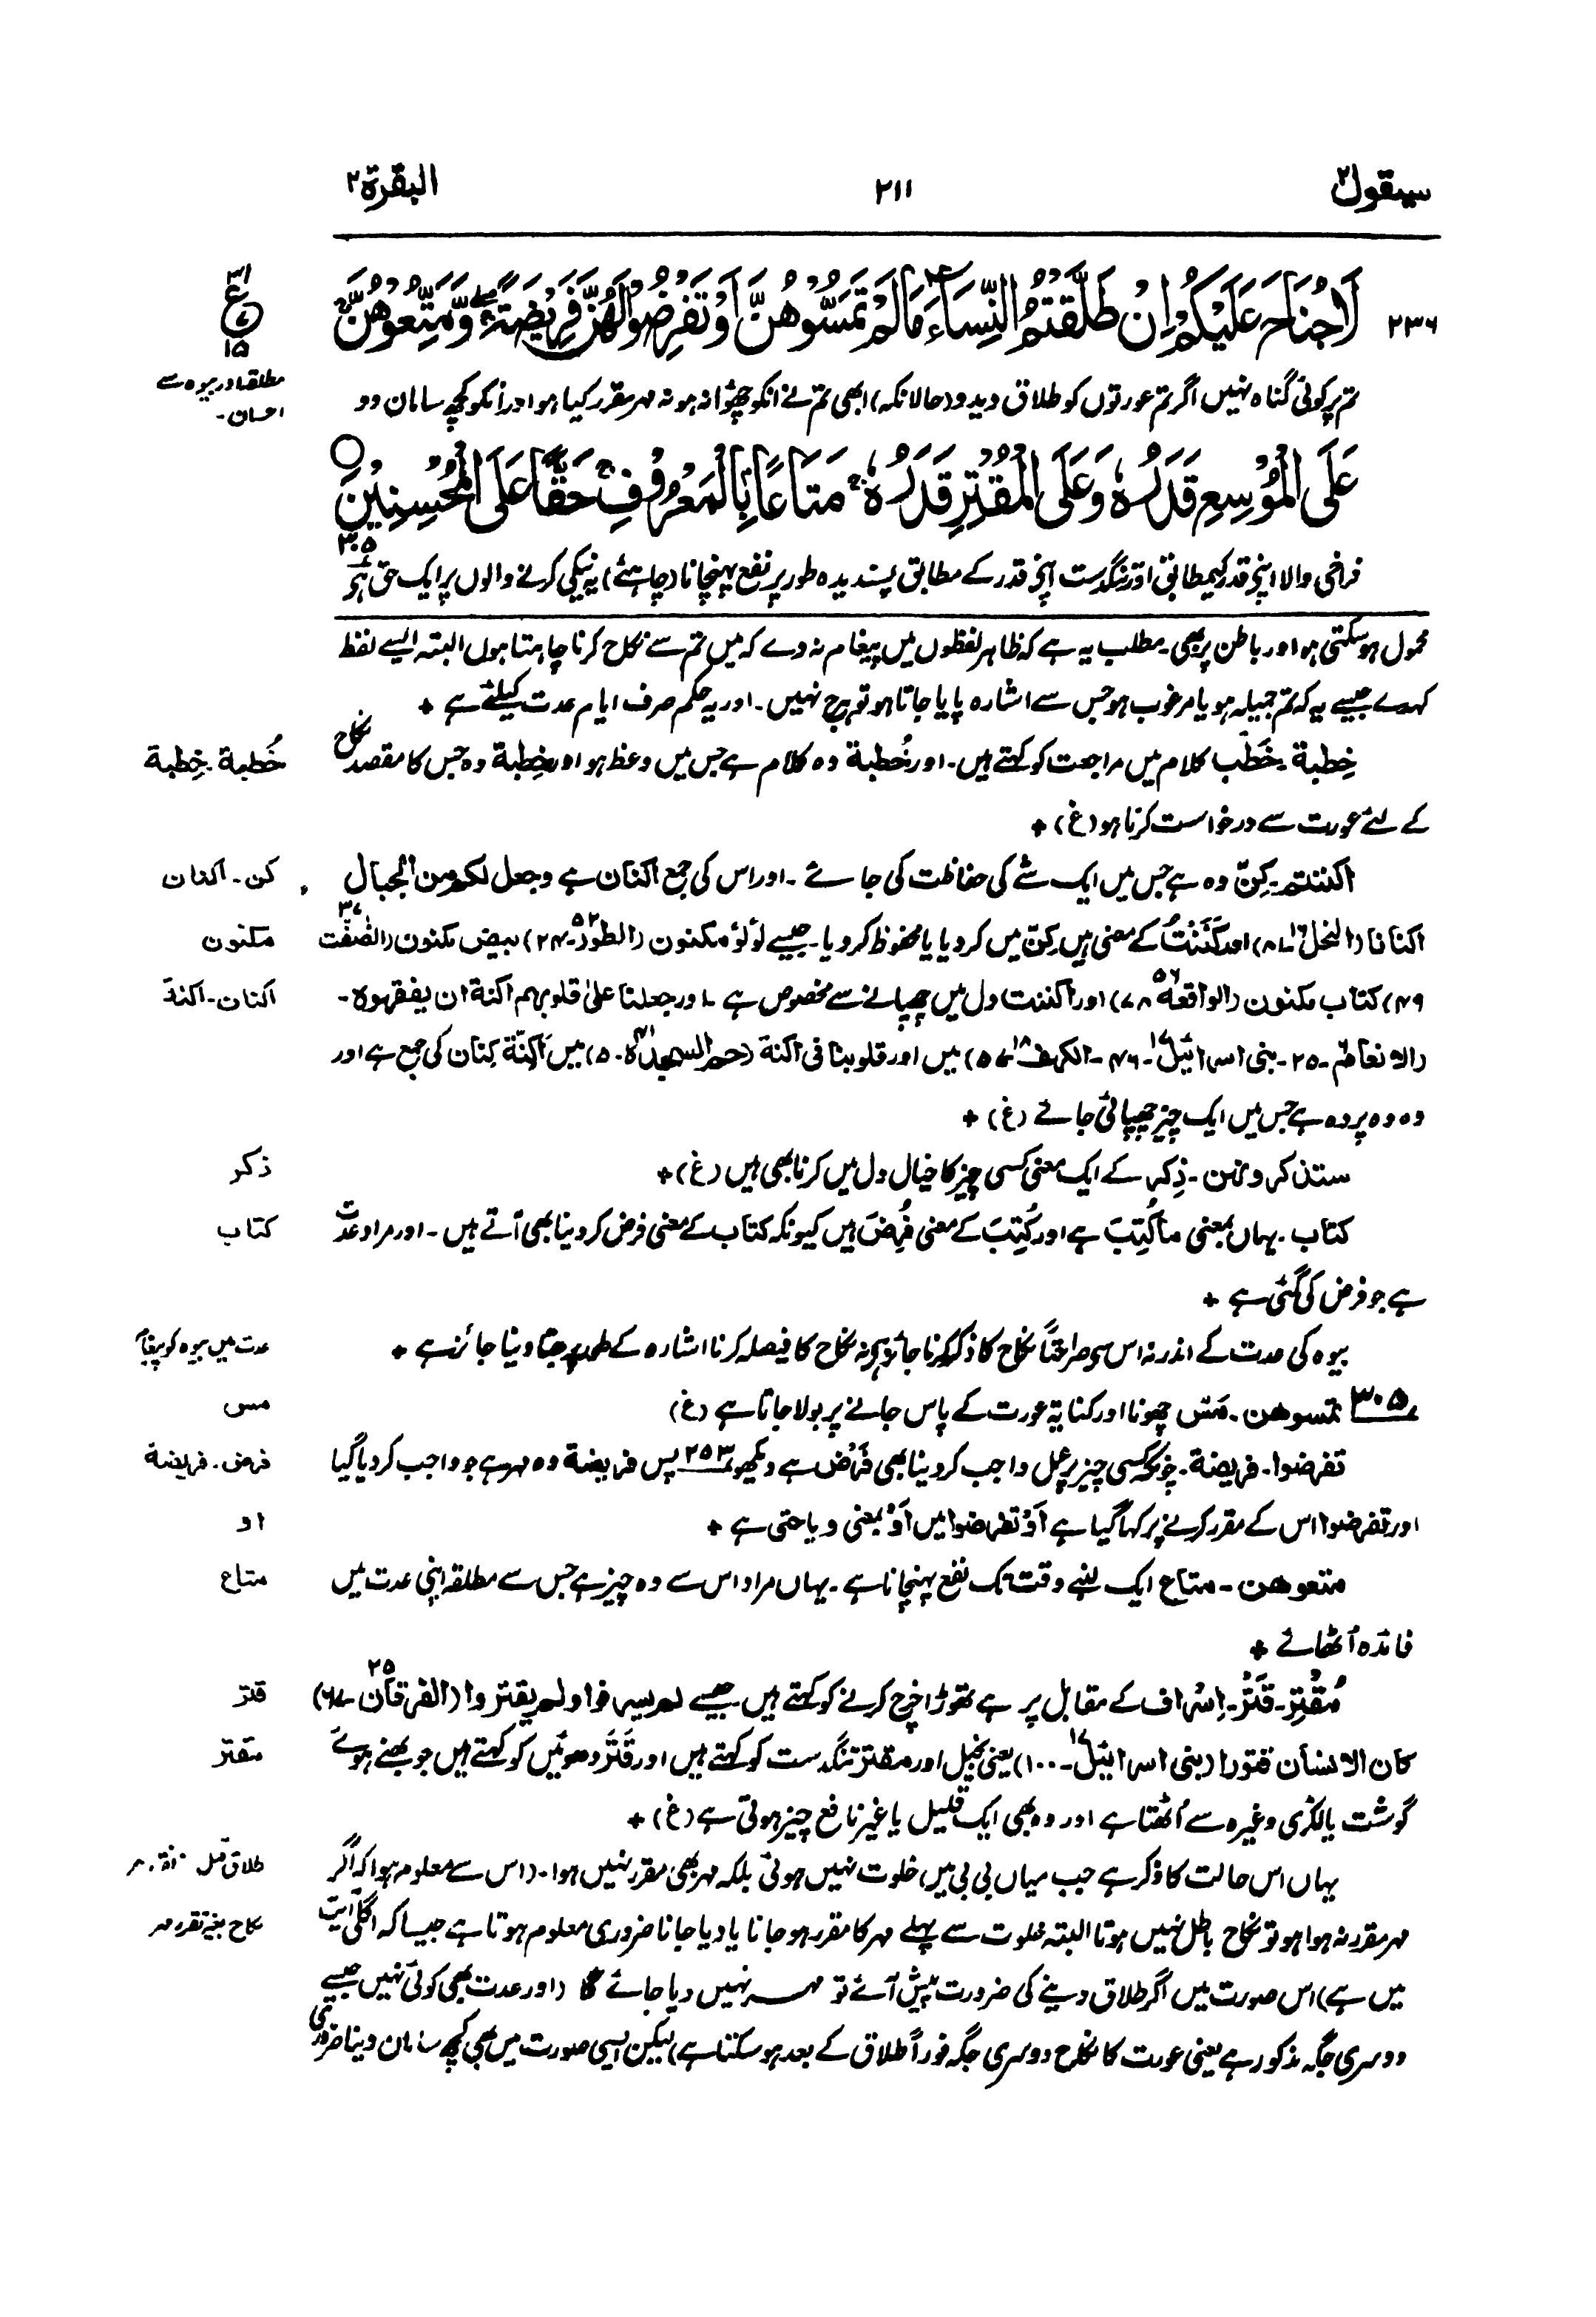 سیقول ۲
۲۱۱
البقرة ۲
۲۳۶
لَا جُنَاحَ عَلَيْكُمْ اِنْ طَلَّقْتُمُ النِّسَآءَ مَا لَمْ تَمَسُّوْهُنَّ اَوْ تَفْرِضُوْا لَهُنَّ فَرِيْضَةً ۚۖ وَّمَتِّعُوْهُنَّ ۚ
۳۱
ع
۷
۱۵
تم پر کوئی گناہ نہیں اگر تم عورتوں کو طلاق دیدو (حالانکہ) ابھی تم نے انکو چھوا نہ ہو نہ مہر مقرر کیا ہو اور اُنکو کچھ سامان دو
مطلقہ اور بیوہ سے
احسان۔
عَلَى الْمُوْسِعِ قَدَرُهٗ وَعَلَى الْمُقْتِرِ قَدَرُهٗ ۚ مَتَاعًا بِالْمَعْرُوْفِ ۚ حَقًّا عَلَى الْمُحْسِنِيْنَ ○
۳۰۵
فراخی والا اپنی قدر کیمطابق اور تنگدست اپنی قدر کے مطابق پسندیدہ طور پر نفع پہنچانا (چاہئے) یہ نیکی کرنے والوں پر ایک حق ہے
محمول ہو سکتی ہو اور باطن پر بھی۔ مطلب یہ ہے کہ ظاہر لفظوں میں پیغام نہ دے کہ میں تم سے نکاح کرنا چاہتا ہوں البتہ ایسے لفظ
کہدے جیسے یہ کہ تم جمیلہ ہو یا مرغوب ہو جس سے اشارہ پایا جاتا ہو تو ہرج نہیں۔ اور یہ حکم صرف ایام عدت کیلئے ہے +
خِطبة۔ خَطَب کلام میں مراجعت کو کہتے ہیں۔ اور خُطبة وہ کلام ہے جس میں وعظ ہو اور خِطبة وہ جس کا مقصد نکاح
خُطبة۔ خِطبة
کے لئے عورت سے درخواست کرنا ہو (غ) +
اکننتم۔ کِنّ وہ ہے جس میں ایک شے کی حفاظت کی جائے۔ اور اس کی جمع اکنان ہے وجعل لکم من الجبال
کن۔ اکنان
اکنانا (النحل ۱۶-۸۱) اور کَنَنْتُ کے معنی ہیں کِنّ میں کر دیا یا محفوظ کر دیا۔ جیسے لؤلؤ مکنون (الطور ۵۲-۲۴) بیض مکنون (الصّٰفّٰت ۳۷
مکنون
۴۹) کتاب مکنون (الواقعة ۵۶-۷۸) اور اکننت دل میں چھپانے سے مخصوص ہے۔ اور جعلنا علیٰ قلوبہم اکنة ان یفقہوہ۔
اکنان۔ اکنة
(الانعام ۶-۲۵۔ بنی اسرائیل ۱۷-۴۶۔ الکہف ۱۸-۵۷) میں اور قلوبنا فی اکنة (حم السجدہ ۴۱-۵) میں اَکِنَّة کِنان کی جمع ہے اور
وہ وہ پردہ ہے جس میں ایک چیز چھپائی جائے (غ) +
ستذکرونہن۔ ذِکر کے ایک معنی کسی چیز کا خیال دل میں کرنا بھی ہیں (غ) +
ذکر
کتاب۔ یہاں بمعنی ما کُتِبَ ہے اور کُتِبَ کے معنی فُرِضَ ہیں کیونکہ کتاب کے معنی فرض کر دینا بھی آتے ہیں۔ اور مراد عدت
کتاب
ہے جو فرض کی گئی ہے +
بیوہ کی عدت کے اندر نہ اس سے صراحتًا نکاح کا ذکر کرنا جائز ہے نہ نکاح کا فیصلہ کرنا اشارہ کے طور پر جتا دینا جائز ہے +
عدت میں بیوہ کو پیغام
۳۰۵ تمسوھن۔ مَسّ چھونا اور کنایة عورت کے پاس جانے پر بولا جاتا ہے (غ)
مس
تفرضوا۔ فریضة۔ چونکہ کسی چیز پر عمل واجب کر دینا بھی فَرْض ہے دیکھو ۲۵۳ پس فریضة وہ مہر ہے جو واجب کر دیا گیا
فرض۔ فریضة
اور تفرضوا اس کے مقرر کرنے پر کہا گیا ہے اَوْ تفرضوا میں اَوْ بمعنی و یا حتی ہے +
او
متعوھن۔ متاع ایک لمبے وقت تک نفع پہنچانا ہے۔ یہاں مراد اس سے وہ چیز ہے جس سے مطلقہ اپنی عدت میں
متاع
فائدہ اُٹھائے +
مُقْتِر۔ قَتْر۔ اِسراف کے مقابل پر ہے تھوڑا خرچ کرنے کو کہتے ہیں۔ جیسے لم یسرفوا و لم یقتروا (الفرقان ۲۵-۶۷)
قتر
کان الانسان قتورا (بنی اسرائیل ۱۷-۱۰۰) یعنی بخیل اور مقتر تنگدست کو کہتے ہیں اور قَتَر دھوئیں کو کہتے ہیں جو بھنے ہوئے
مقتر
گوشت یا لکڑی وغیرہ سے اُٹھتا ہے اور وہ بھی ایک قلیل یا غیر نافع چیز ہوتی ہے (غ) +
یہاں اس حالت کا ذکر ہے جب میاں بی بی میں خلوت نہیں ہوئی بلکہ مہر بھی مقرر نہیں ہوا۔ (اس سے معلوم ہوا کہ اگر
طلاق قبل
مہر مقرر نہ ہوا ہو تو نکاح باطل نہیں ہوتا البتہ خلوت سے پہلے مہر کا مقرر ہو جانا یا دیا جانا ضروری معلوم ہوتا ہے جیسا کہ اگلی آیت
نکاح بغیر تقرر مہر
میں ہے) اس صورت میں اگر طلاق دینے کی ضرورت پیش آئے تو مہر نہیں دیا جائے گا (اور عدت بھی کوئی نہیں جیسے
دوسری جگہ مذکور ہے یعنی عورت کا نکاح دوسری جگہ فوراً طلاق کے بعد ہو سکتا ہے) لیکن ایسی صورت میں بھی کچھ سامان دینا ضروری